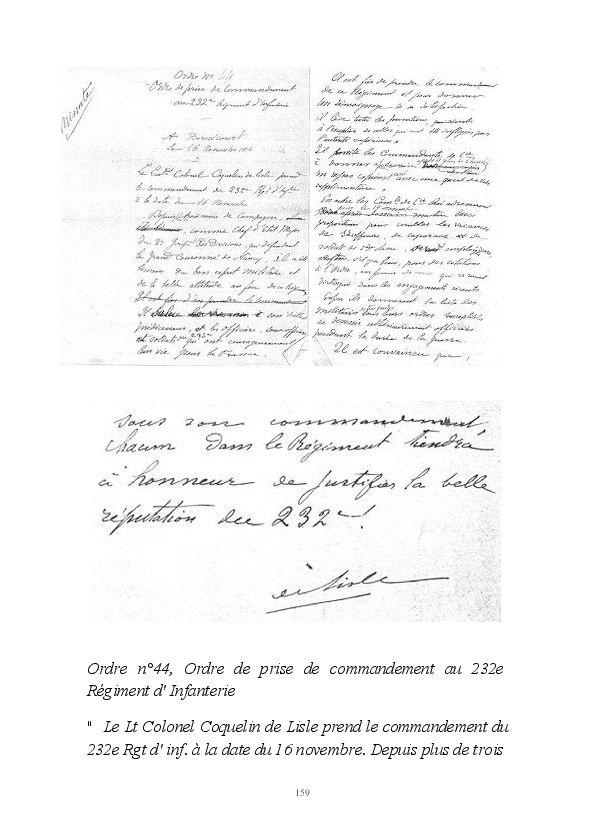 minute
Ordre No 44
Ordre de prise de Commandement
au 232e Régiment d'Infanterie
A
Le 16 Novembre 1914
Le Lt Colonel Coquelin de Lisle prend
le commandement du 232e Rgt d'Infie
à la date du 16 Novembre
Depuis trois mois de Campagne,
comme Chef d'Etat Major
du 2e Groupe de Divisions, qui défendent
le Grand Couronné de Nancy, il a été
témoin du bon esprit militaire et
de la belle attitude au feu de ce Régiment
Il est fier d'en prendre le commandement
Il salue
et les officiers, sous officiers
et soldats du 232e qui ont courageusement
leur vie pour la France.
Il est fier de prendre le commandement
de ce Régiment et pour donner
un témoignage de sa satisfaction
il lève toutes les punitions
à l'exception de celles qui ont été infligées par
l'autorité supérieure.
Il invite les Commandants de Cie
à donner
un repas copieux avec une quart de vin
supplémentaire.
En outre les Comts de Cie lui adresseront
leurs
propositions pour combler les vacances
de Sous officiers, de caporaux et de
soldats de 1ère classe.
s'il y a lieu, pour des citations
à l'Ordre, en faveur de ceux qui se sont
distingués dans les engagements récents
Enfin ils donneront la liste des
militaires sous leurs ordres susceptibles
de devenir ultérieurement officiers
pendant la durée de la guerre.
Il est convaincu que
sous son commandement
chacun dans le Régiment tiendra
à honneur de justifier la belle
réputation du 232e!
de Lisle
Ordre n°44, Ordre de prise de commandement au 232e
Régiment d' Infanterie
" Le Lt Colonel Coquelin de Lisle prend le commandement du
232e Rgt d' inf. à la date du 16 novembre. Depuis plus de trois
159